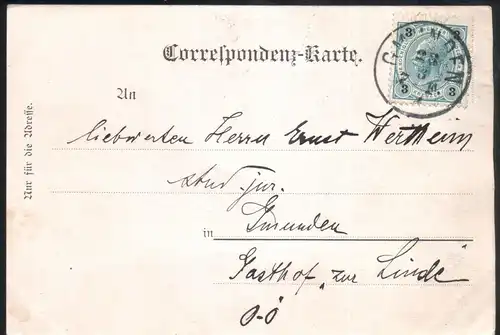 Correspondenz-Karte.
An
liebwerten Herrn Ernst Wertheim
stud jur.
in Gmunden
Gasthof "zur Linde"
O-Ö
Nur für die Adresse.
3 3
3 3